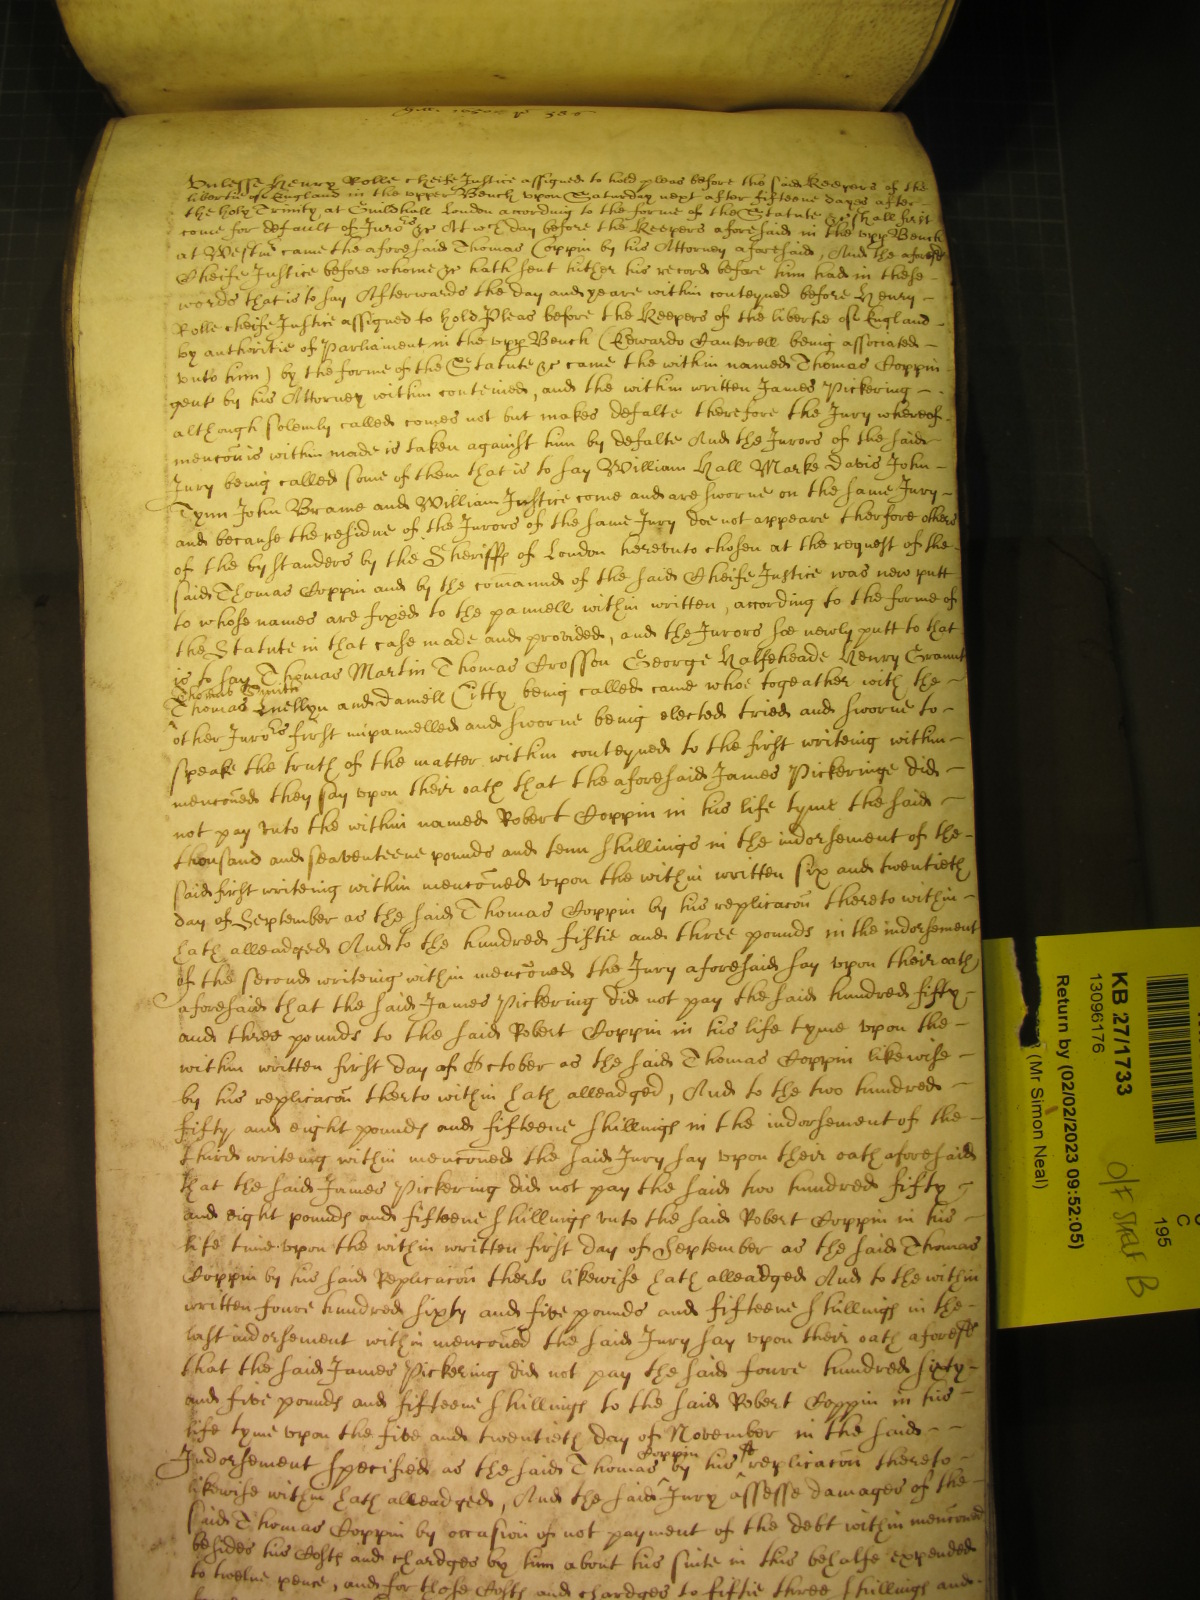 Unlesse Henry Rolle cheife Justice assigned to hold pleas before the said Keepers of the
libertie of England in the upper Bench upon Saturday next after fifteene dayes after
the holy Trinity, at Guildhall London according to the forme of the Statute &c shall first
come for default of Juro:rs &c At wch day before the Keepers aforesaid in the upp Bench
at Westmr came the aforesaid Thomas Coppin by his Attorney aforesaid, And the aforesd
Cheife Justice before whome &c hath sent hither his record before him had in these
words that is to say Afterwards the day and yeare within conteyned before Henry
Rolle cheife Justice assigned to hold Pleas before the Keepers of the libertie of England
by authoritie of Parliament in the upp Bench (Edwardo Canterell being associated
unto him) by the forme of the Statute &c came the within named Thomas Coppin
gent by his Attorney within conteined, and the within written James Pickering
although solemly called comes not but makes defalte therefore the Jury whereof
mencon is within made is taken against him by defalte And the Jurors of the said
Jury being called some of them that is to say William Hall Marke Davis John
Tynn John Brame and William Justice come and are sworne on the same Jury
and because the residue of the Jurors of the same Jury doe not appeare therfore others
of the bystanders by the Sheriffs of London hereunto chosen at the request of the
said Thomas Coppin and by the comannd of the said Cheife Justice was new putt
to whose names are fixed to the pannell within written, according to the forme of
the Statute in that case made and provided, and the Jurors soe newly putt to that
is to say Thomas Martin Thomas Crosson George Halfeheade Henry Grannt
Thomas Smith
Thomas Luellyn and Daniell Citty being called came whoe togeather with the
other Juro:rs first inpannelled and sworne being elected tried and sworne to
speake the truth of the matter within conteyned to the first writeing within
menconed they say upon their oath that the aforesaid James Pickeringe did
not pay unto the within named Robert Coppin in his life tyme the said
thousand and seaventeene pounds and tenn shillings in the indorsement of the
said first writeing within menconed upon the within written six and twentieth
day of September as the said Thomas Coppin by his replicacon thereto within
hath alleadged And to the hundred fiftie and three pounds in the indorsement
of the second writeing within menconed the Jury aforesaid say upon their oath
aforesaid that the said James Pickering did not pay the said hundred fifty
and three pounds to the said Robert Coppin in his life tyme upon the
within written first day of October as the said Thomas Coppin likewise
by his replicacon therto within hath alleadged, And to the two hundred
fifty and eight pounds and fifteene shillings in the indorsement of the
third writeing within menconed the said Jury say upon their oath aforesaid
that the said James Pickering did not pay the said two hundred fifty
and eight pounds and fifteene shillings unto the said Robert Coppin in his
life time upon the within written first day of September as the said Thomas
Coppin by his said Replicacon therto likewise hath alleadged And to the within
written foure hundred sixty and five pounds and fifteene shillings in the
last indorsement within menconed the said Jury say upon their oath aforesd
that the said James Pickering did not pay the said foure hundred sixty
and five pounds and fifteene shillings to the said Robert Coppin in his
life tyme upon the five and twentieth day of November in the said
Indorsement specified as the said Thomas Coppin by his sd replicacon thereto
likewise within hath alleadged, And the said Jury assesse damages of the
said Thomas Coppin by occasion of not payment of the debt within menconed
besides his Costs and chardges by him about his suite in this behalfe expended
to twelve pence, and for those Costs and chardges to fiftie three shillings and
KB 27/1733
13096176
Return by (02/02/2023 09:52:05)
(Mr Simon Neal)
C
195
O/S Shelf B